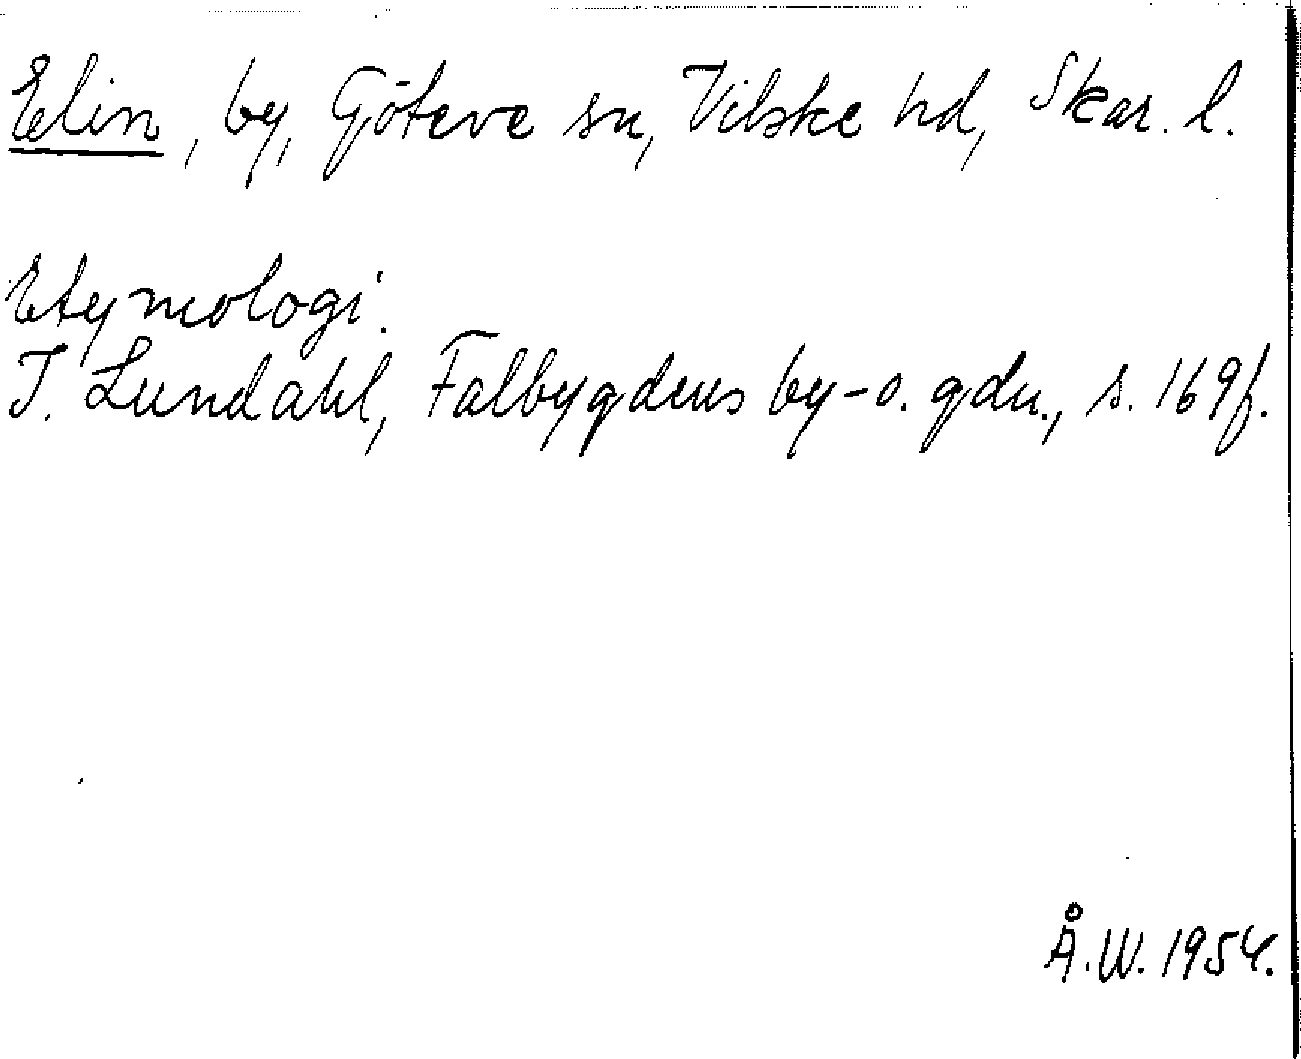 Elin, by, Göteve sn, Vilske hd, Skar. l.
Etymologi.
I. Lundahl, Falbygdens by- o. gdn., s. 169f.
Å.W. 1954.